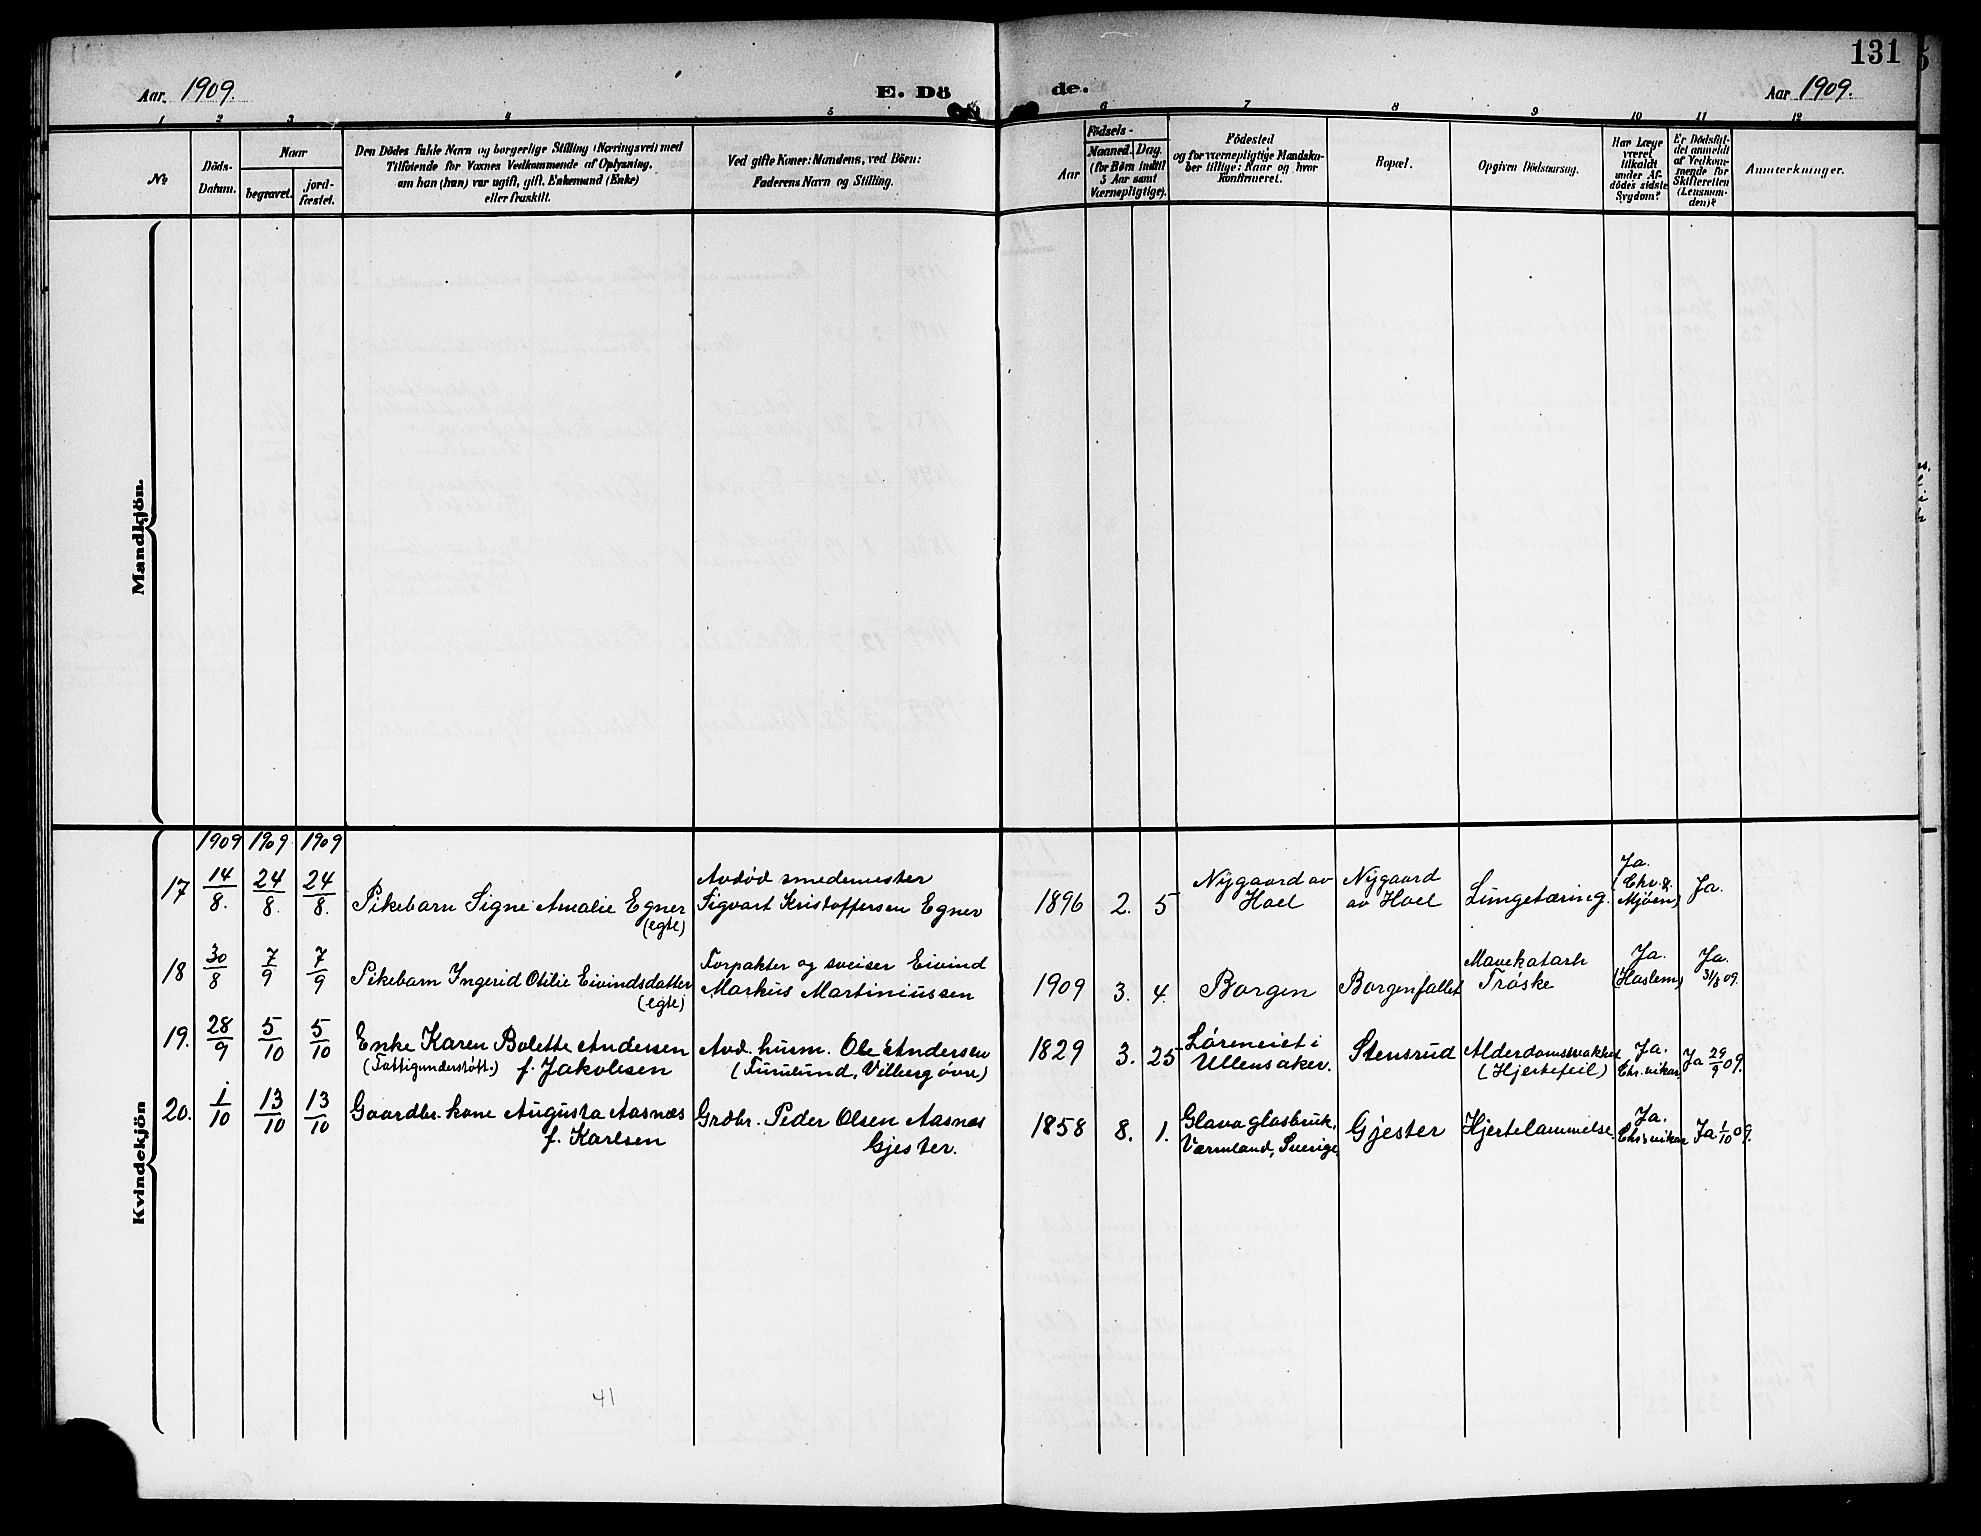 131
Aar. 1909.
E. Dö
de.
Aar 1909.
1 2 3 4 5 6 7 8 9 10 11 12
No
Döds-
Datum.
Naar
begravet.
jord-
fæstet.
Den Dödes fulde Navn og borgerlige Stilling (Næringsvei) med
Tilföiende for Voxnes Vedkommende af Oplysning,
om han (hun) var ugift, gift, Enkemand (Enke)
eller fraskilt.
Ved gifte Koner: Mandens, ved Börn:
Faderens Navn og Stilling.
Födsels-
Aar
Maaned. Dag.
(for Börn indtil
5 Aar samt
Værnepligtige).
Födested
og for værnepligtige Mandska-
ber tillige: Naar og hvor
Konfirmeret.
Bopæl.
Opgiven Dödsaarsag.
Har Læge
været
tilkaldt
under Af-
dödes sidste
Sygdom?
Er Dödsfal-
det anmeldt
af Vedkom-
mende for
Skifteretten
(Lensman-
den)?
Anmærkninger.
Mandkjön.
Kvindekjön
1909 1909 1909
17 14/8. 24/8. 24/8. Pikebarn Signe Amalie Egner
(egte)
Avdød smedemester
Sigvart Kristoffersen Egner
1896 2. 5
Nygaard av
Hoel
Nygaard
av Hoel
Lungetæring.
Ja.
(Chr. &
Mjøen)
Ja.
18 30/8 7/9 7/9 Pikebarn Ingerid Otilie Eivindsdatter
(egte)
Forpakter og sveiser Eivind
Markus Martiniussen
1909 3. 4.
Borgen
Borgenfallet
Mavekatarh
Trøske
Ja.
(Haslem)
Ja.
31/8 09.
19. 28/9 5/10 5/10 Enke Karen Bolette Andersen
(Fattigunderstøtt.) f. Jakobsen
Avd. husm. Ole Andersen
(Furulund, Vilberg øvre)
1829 3. 25
Løreneiet i
Ullensaker.
Stensrud
Alderdomssvakhet
(Hjertefeil)
Ja.
Chr. vikar
Ja 29/9 09.
20. 1/10 13/10 13/10 Gaardbr. kone Augusta Aasnæs
f. Karlsen
Grdbr. Peder Olsen Aasnæs
Gjester.
1858 8. 1.
Glava glasbruk,
Værmland, Sverige.
Gjester
Hjertelammelse.
Ja.
Chrs vikar
Ja 1/10 09.
41